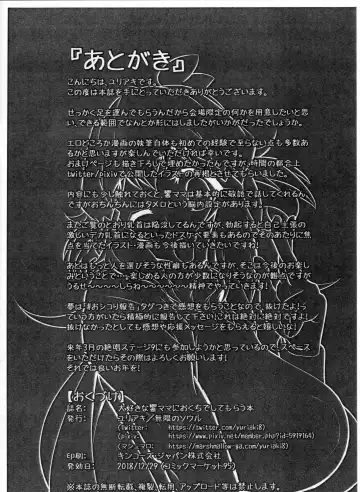 『あとがき』
こんにちは、ユリアキです。
この度は本誌を手にとっていただきありがとうございます。
せっかく足を運んでもらうんだから会場限定の何かを用意したいと思
い、できる範囲でなんとか形にはしましたがいかがだったでしょうか。
エロどころか漫画の執筆自体も初めての経験で至らない点も多数あ
るかと思いますが楽しんでいただければ幸いです。
おまけページも描き下ろしで埋めたかったんですが、時間の都合上
twitter/pixivで公開したイラストの再掲とさせてもらいました。
内容にも少し触れておくと、響ママは基本的に敬語で話してくれるん
ですがおちんちんにはタメ口という脳内設定があります。
またご覧のとおり乳首は陥没してるんですが、勃起すると自己主張の
激しいデカ乳首になるといったドスケベ要素もあるのでそのあたりに焦
点を当てたイラスト・漫画も今後描いていきたいですね!
あとはもっと人を選びそうな性癖もあるんですが、そこは今後のお楽し
みということで…楽しめる人の方が少数になりそうなのが難点ですが
うるせ〜〜〜〜しらね〜〜〜〜精神でやっていきます!
夢は「#おシコり報告」タグつきで感想をもらうことなので、抜けたよ!っ
ていう方がいたら積極的に報告して下さい!これは絶対に絶対ですよ!
抜けなかったとしても感想や応援メッセージをもらえると嬉しいな!
来年3月の絶唱ステージ9にも参加しようかと思っているので、スペース
をいただけたらその際はよろしくお願いします!
それでは良いお年を!
【おくづけ】
誌名: 大好きな響ママにおくちでしてもらう本
発行: ユリアキ/無限のソウル
(twitter: https://twitter.com/yuriaki8)
(pixiv: https://www.pixiv.net/member.php?id=5919164)
(マシュマロ: https://marshmallow-qa.com/yuriaki8)
印刷: キンコーズ・ジャパン株式会社
発効日: 2018/12/29(コミックマーケット95)
※本誌の無断転載、複製、転用、アップロード等は禁止します。